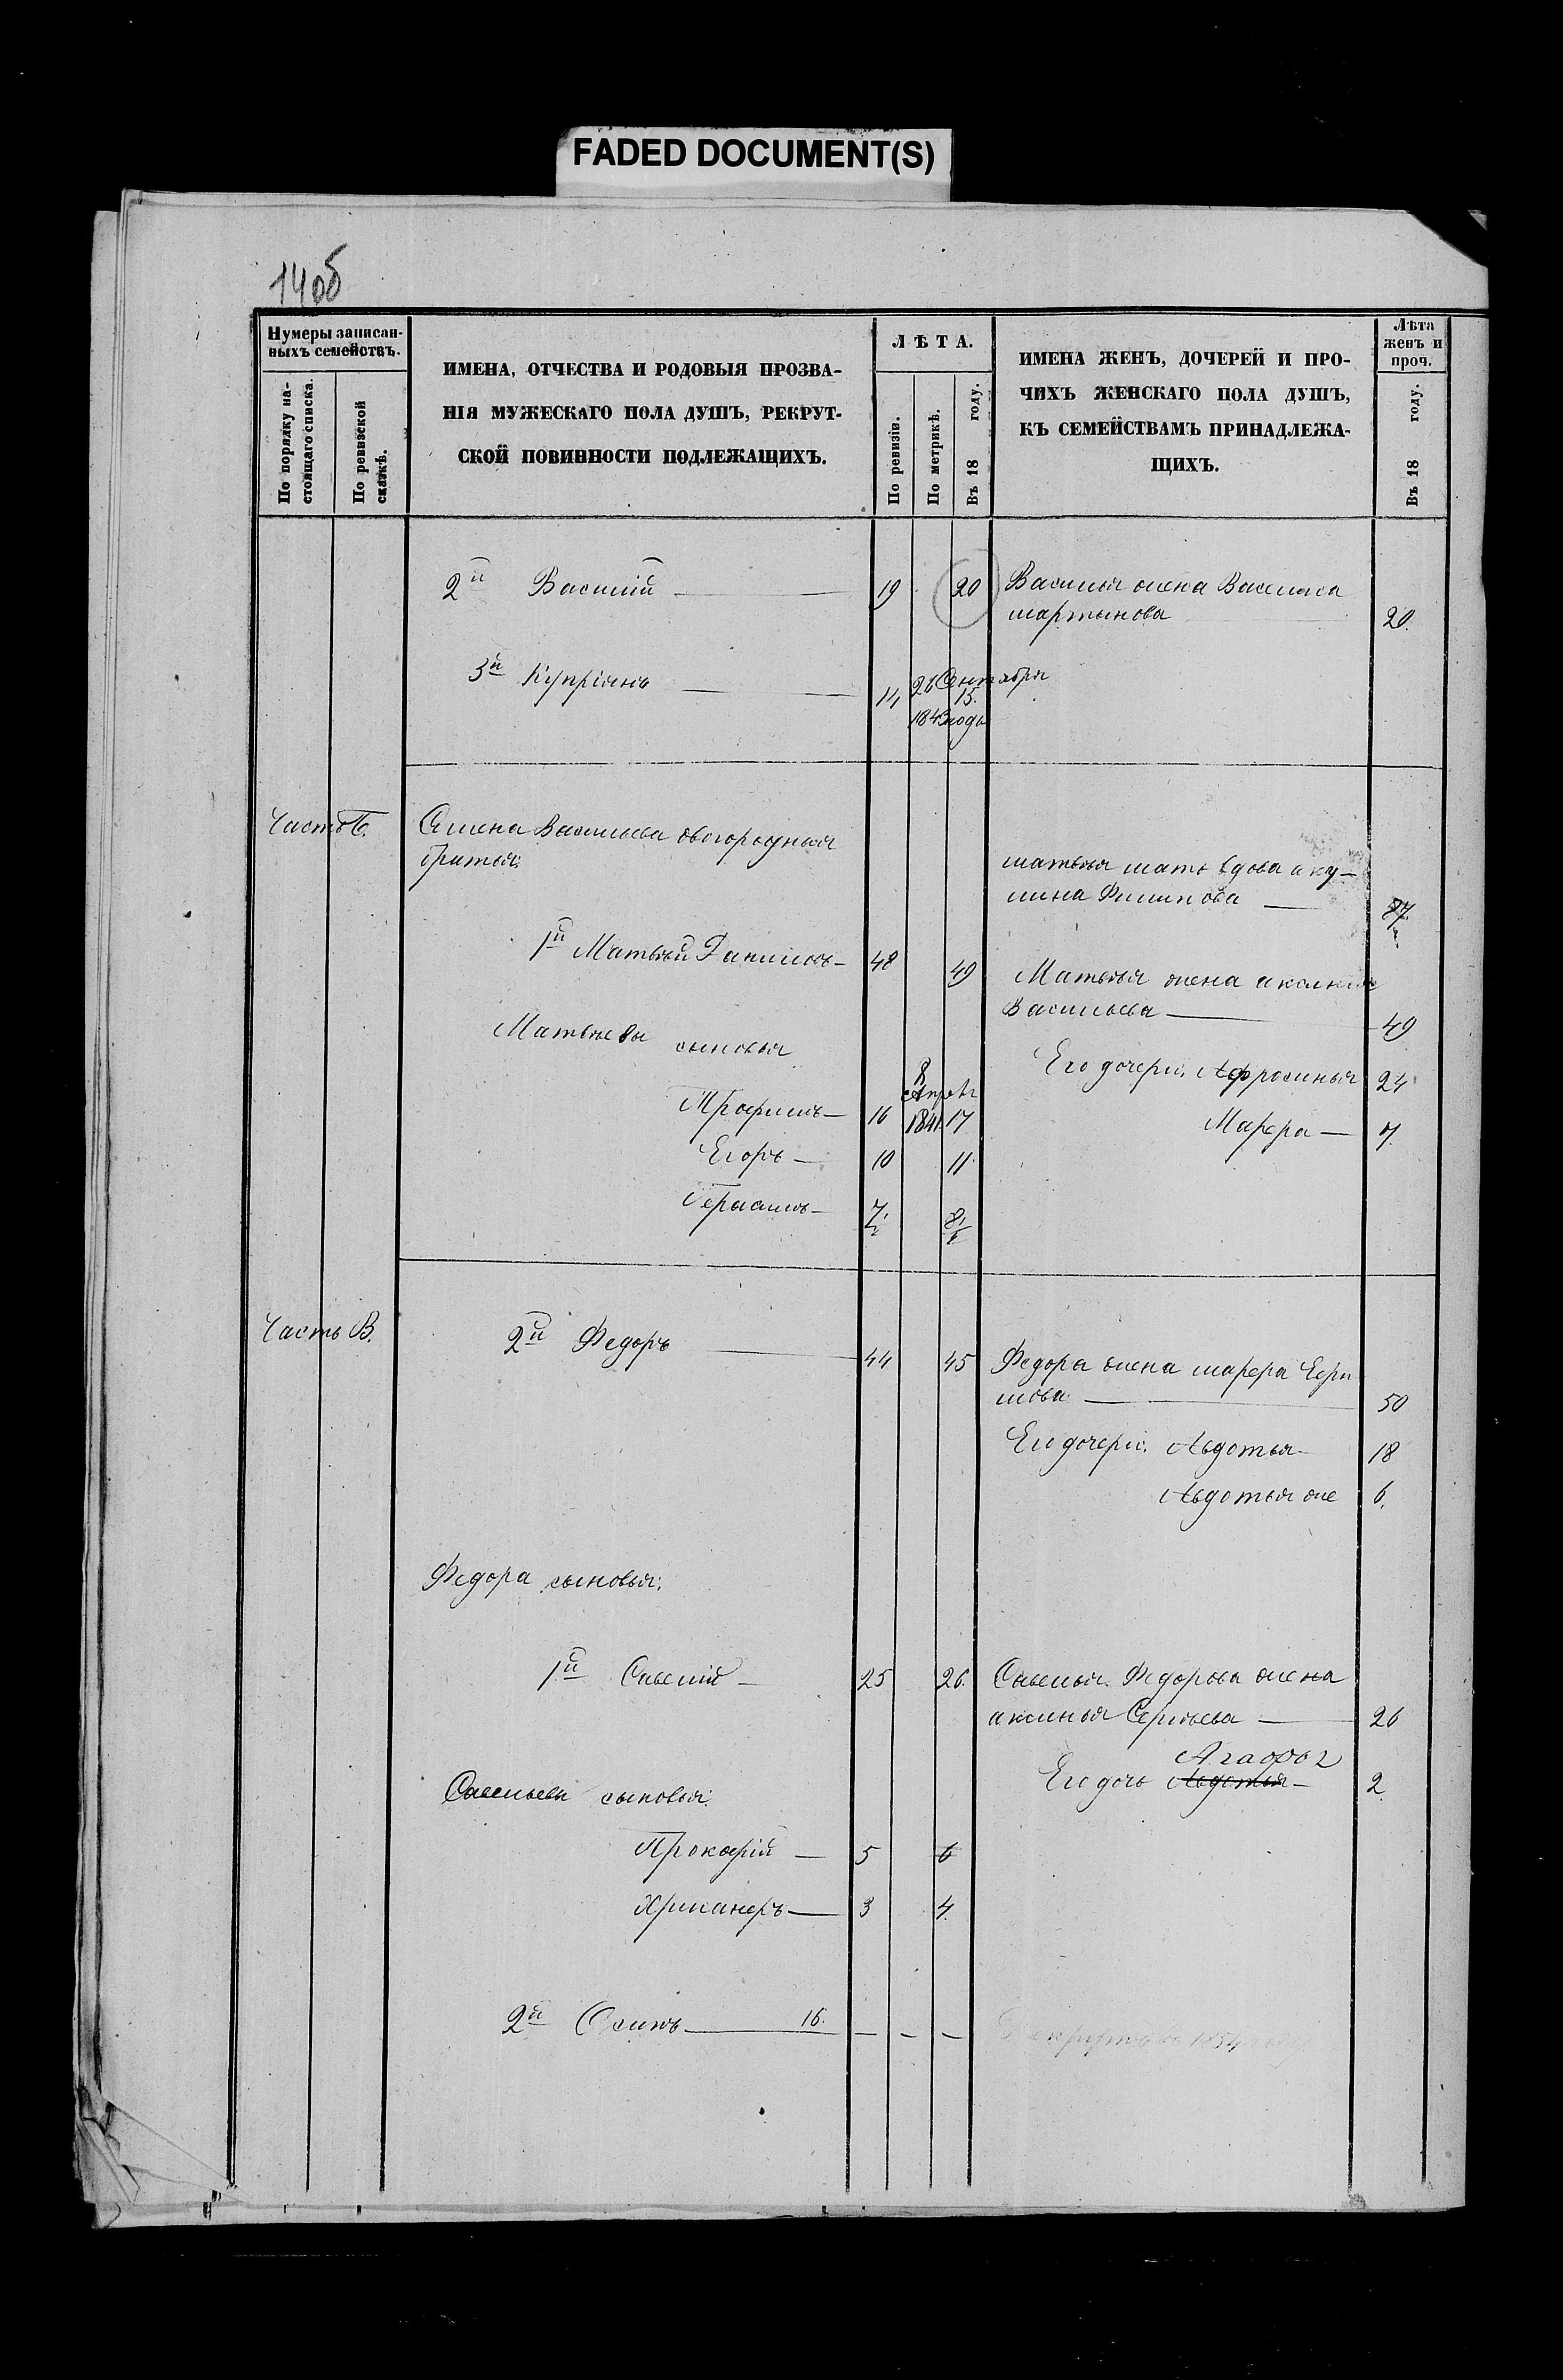 FADED DOCUMENT(S)
14об
Нумеры записан-
ныхъ семействъ.
По порядку на-
стоящаго списка.
По ревизской
сказкѣ.
ИМЕНА, ОТЧЕСТВА И РОДОВЫЯ ПРОЗВА-
НІЯ МУЖЕСКАГО ПОЛА ДУШЪ, РЕКРУТ-
СКОЙ ПОВИННОСТИ ПОДЛЕЖАЩИХЪ.
ЛѢТА.
По ревизіи.
По метрикѣ.
Въ 18 году.
ИМЕНА ЖЕНЪ, ДОЧЕРЕЙ И ПРО-
ЧИХЪ ЖЕНСКАГО ПОЛА ДУШЪ,
КЪ СЕМЕЙСТВАМЪ ПРИНАДЛЕЖА-
ЩИХЪ.
Лѣта
женъ и
проч.
Въ 18 году.
2й Василій — 19 20 Василья жена Василиса
мартынова 20.
3й Купріянъ — 14 26 Сентября 15.
1843 года
Часть Б. Семена Васильева двоюродныя
братья:
матвѣя мать вдова аку-
лина Филипова — 87.
1й Матвѣй Даниловъ — 48 49 Матвѣя жена аксинья
Васильева — 49
Матвѣевы сыновья
Его дочери: Афросинья 24
Трофимъ — 16 8 Апрѣля 1841 17
Марфа — 7.
Егоръ — 10 11.
Герасимъ — 7. 8.
Часть В. 2й Федоръ — 44 45 Федора жена марфа Ефи
мова — 50
Его дочери: Авдотья 18
Авдотья же 6.
Федора сыновья:
1й Савелій — 25 26. Савелья Федорова жена
аксинья Сергѣева — 26
Агафья
Его дочь Авдотья — 2.
Савельевы сыновья:
Прокофій — 5 6
Хрисанфъ — 3 4.
2й Осипъ — 16. — — — 1854 году